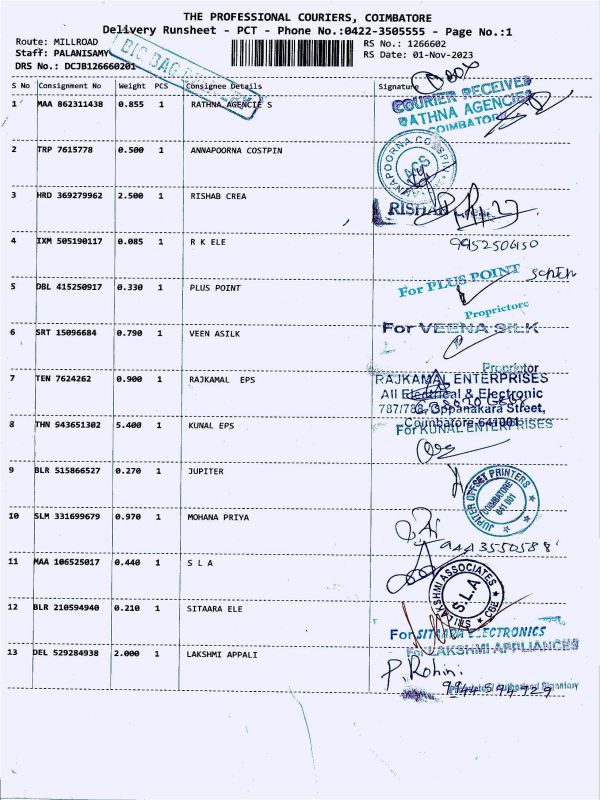 THE PROFESSIONAL COURIERS, COIMBATORE
Delivery Runsheet - PCT - Phone No.:0422-3505555 - Page No.:1
Route: MILLROAD
Staff: PALANISAMY
DRS No.: DCJB126660201
RS No.: 1266602
RS Date: 01-Nov-2023
BIG BAG
S No Consignment No Weight PCS Consignee Details Signature
1 MAA 862311438 0.855 1 RATHNA AGENCIE S
COURIER RECEIVED
RATHNA AGENCIES
COIMBATORE
2 TRP 7615778 0.500 1 ANNAPOORNA COSTPIN
ACS
3 HRD 369279962 2.500 1 RISHAB CREA
RISHAB
4 IXM 505190117 0.085 1 R K ELE
9952506150
5 DBL 415250917 0.330 1 PLUS POINT
For PLUS POINT
Proprietor
6 SRT 15096684 0.790 1 VEEN ASILK
For VEENA SILK
Proprietor
7 TEN 7624262 0.900 1 RAJKAMAL EPS
RAJKAMAL ENTERPRISES
All Electrical & Electronic
787/788, Oppanakara Street,
Coimbatore-641001
8 THN 943651302 5.400 1 KUNAL EPS
For KUNAL ENTERPRISES
9 BLR 515866527 0.270 1 JUPITER
JUPITER OFFSET PRINTERS
COIMBATORE
641 001
10 SLM 331699679 0.970 1 MOHANA PRIYA
11 MAA 106525017 0.440 1 S L A
LAKSHMI ASSOCIATES
S.L.A
CBE
12 BLR 210594940 0.210 1 SITAARA ELE
For SITAARA ELECTRONICS
13 DEL 529284938 2.000 1 LAKSHMI APPALI
For LAKSHMI APPLIANCES
P. Rohini
Authorised Signatory